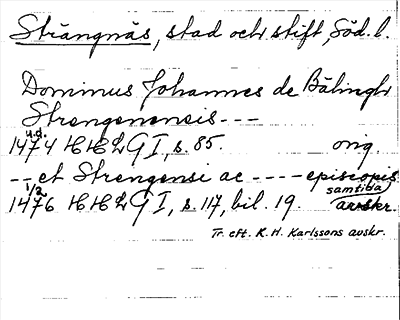 Strängnäs, stad och stift, Söd. l.
Dominus Johannes de Bälinghr
Strengenensis ---
u.d.
1474 HHLG I, s. 85. orig.
-- et Strengensi ac ---- episcopis
1/2 samtida
1476 HHLG I, s. 117, bil. 19. avskr.
Tr. eft. K. H. Karlssons avskr.